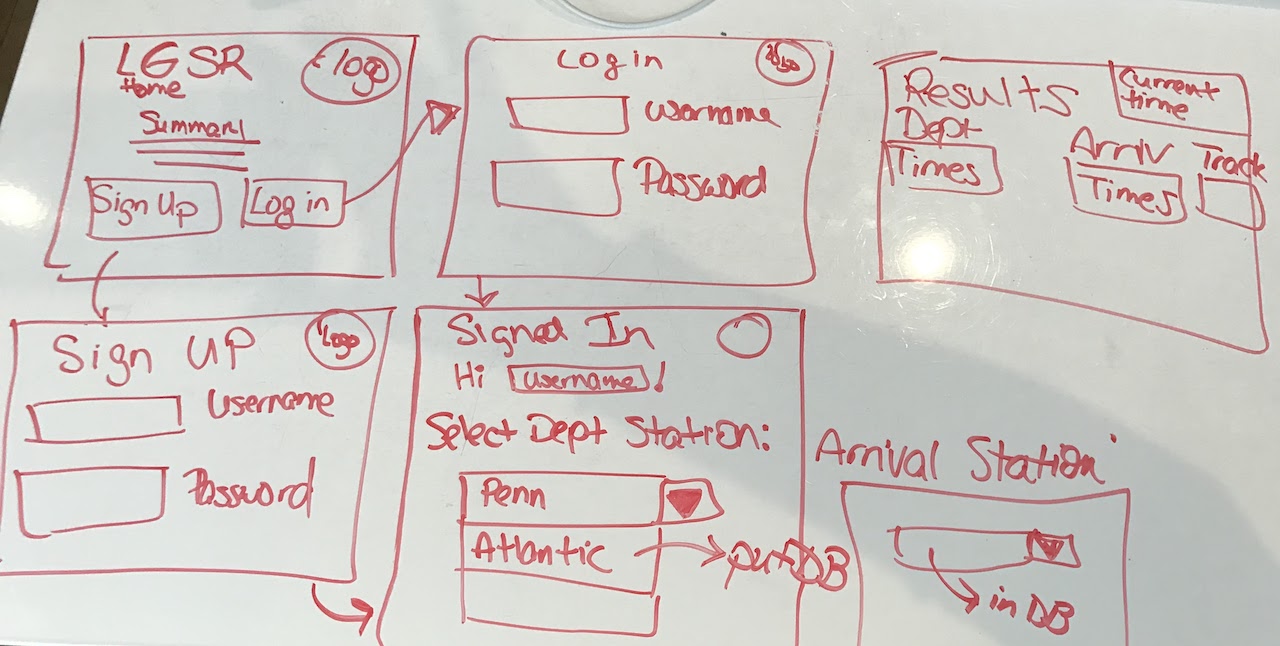 LGSR
Home
logo
Summary
Sign Up
Log in
Log in
Logo
username
Password
Results
Current
time
Dept
Times
Arriv
Times
Track
Sign UP
Logo
Username
Password
Signed In
Hi username!
Select Dept Station:
Penn
Atlantic
put DB
Arrival Station:
in DB